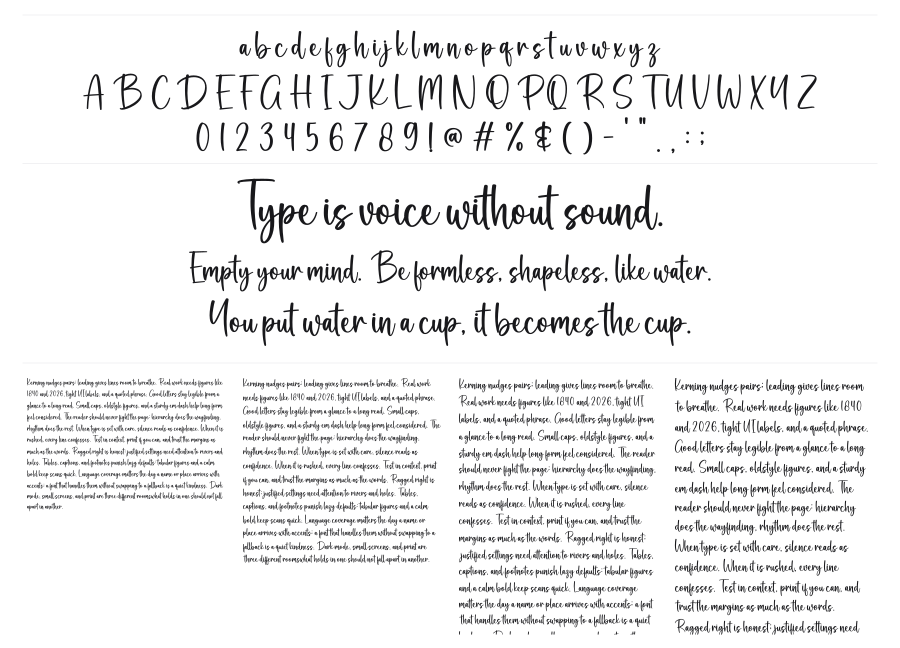 a b c d e f g h i j k l m n o p q r s t u v w x y z
A B C D E F G H I J K L M N O P Q R S T U V W X Y Z
0 1 2 3 4 5 6 7 8 9 ! @ # % & ( ) - ' " . , : ;
Type is voice without sound.
Empty your mind. Be formless, shapeless, like water.
You put water in a cup, it becomes the cup.
Kerning nudges pairs; leading gives lines room to breathe. Real work needs figures like
1840 and 2026, tight UI labels, and a quoted phrase. Good letters stay legible from a
glance to a long read. Small caps, oldstyle figures, and a sturdy em dash help long form
feel considered. The reader should never fight the page: hierarchy does the wayfinding,
rhythm does the rest. When type is set with care, silence reads as confidence. When it is
rushed, every line confesses. Test in context, print if you can, and trust the margins as
much as the words. Ragged right is honest; justified settings need attention to rivers and
holes. Tables, captions, and footnotes punish lazy defaults: tabular figures and a calm
bold keep scans quick. Language coverage matters the day a name or place arrives with
accents: a font that handles them without swapping to a fallback is a quiet kindness. Dark
mode, small screens, and print are three different rooms what holds in one should not fall
apart in another.
Kerning nudges pairs; leading gives lines room to breathe. Real work
needs figures like 1840 and 2026, tight UI labels, and a quoted phrase.
Good letters stay legible from a glance to a long read. Small caps,
oldstyle figures, and a sturdy em dash help long form feel considered. The
reader should never fight the page: hierarchy does the wayfinding,
rhythm does the rest. When type is set with care, silence reads as
confidence. When it is rushed, every line confesses. Test in context, print
if you can, and trust the margins as much as the words. Ragged right is
honest; justified settings need attention to rivers and holes. Tables,
captions, and footnotes punish lazy defaults: tabular figures and a calm
bold keep scans quick. Language coverage matters the day a name or
place arrives with accents: a font that handles them without swapping to a
fallback is a quiet kindness. Dark mode, small screens, and print are
three different rooms what holds in one should not fall apart in another.
Kerning nudges pairs; leading gives lines room to breathe.
Real work needs figures like 1840 and 2026, tight UI
labels, and a quoted phrase. Good letters stay legible from
a glance to a long read. Small caps, oldstyle figures, and a
sturdy em dash help long form feel considered. The reader
should never fight the page: hierarchy does the wayfinding,
rhythm does the rest. When type is set with care, silence
reads as confidence. When it is rushed, every line
confesses. Test in context, print if you can, and trust the
margins as much as the words. Ragged right is honest;
justified settings need attention to rivers and holes. Tables,
captions, and footnotes punish lazy defaults: tabular figures
and a calm bold keep scans quick. Language coverage
matters the day a name or place arrives with accents: a font
that handles them without swapping to a fallback is a quiet
Kerning nudges pairs; leading gives lines room
to breathe. Real work needs figures like 1840
and 2026, tight UI labels, and a quoted phrase.
Good letters stay legible from a glance to a long
read. Small caps, oldstyle figures, and a sturdy
em dash help long form feel considered. The
reader should never fight the page: hierarchy
does the wayfinding, rhythm does the rest.
When type is set with care, silence reads as
confidence. When it is rushed, every line
confesses. Test in context, print if you can, and
trust the margins as much as the words.
Ragged right is honest; justified settings need